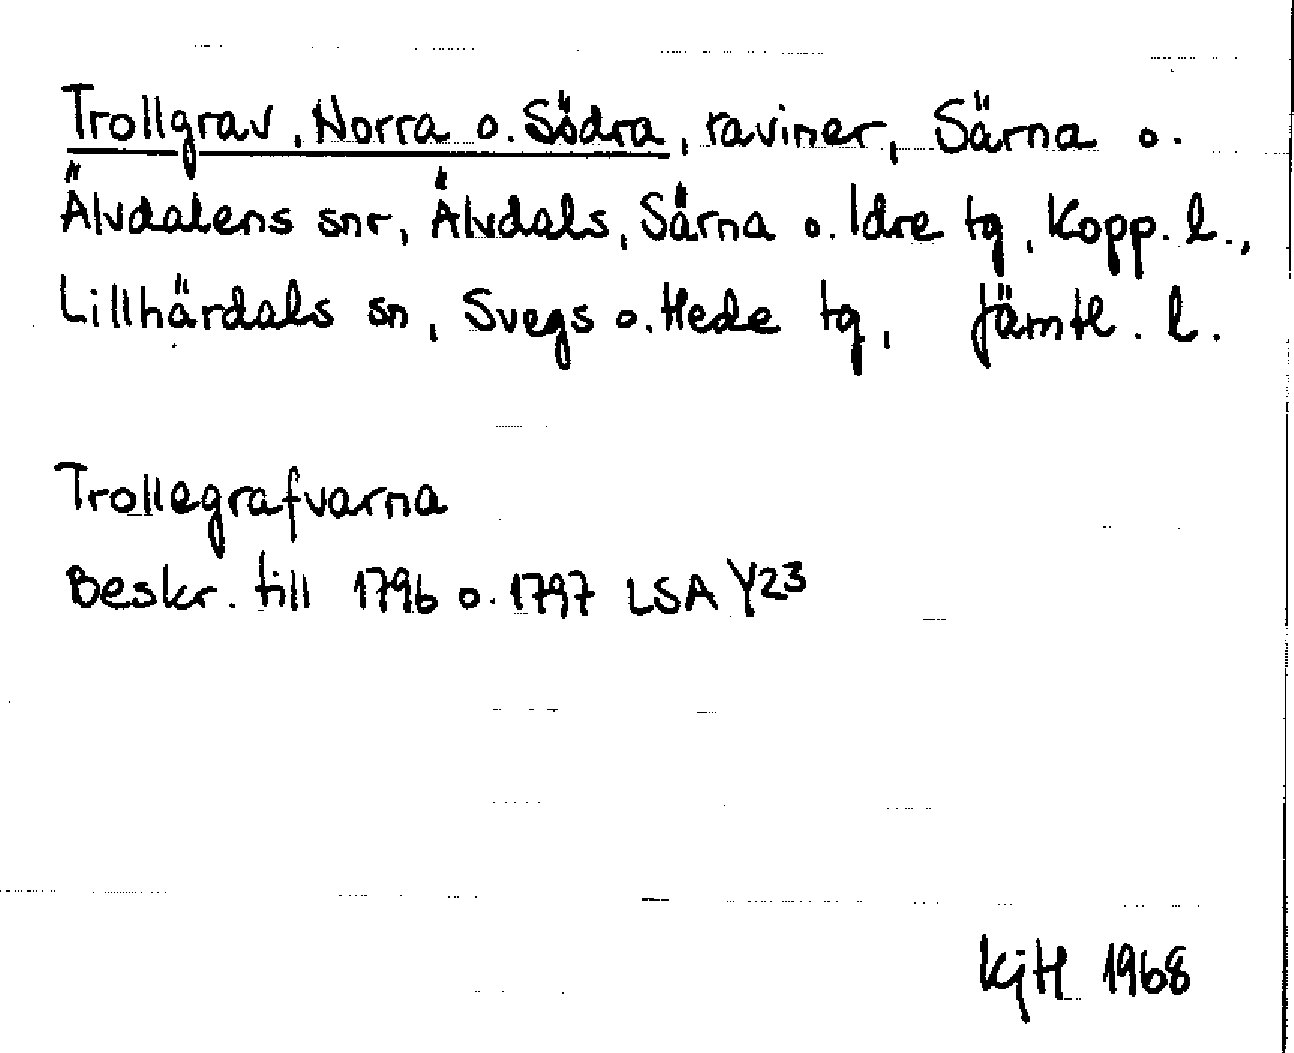 Trollgrav, Norra o. Södra, raviner, Särna o.
Älvdalens snr, Älvdals, Särna o. Idre tg, Kopp. l.,
Lillhärdals sn, Svegs o. Hede tg, Jämtl. l.
Trollegrafvarna
Beskr. till 1796 o. 1797 LSA Y23
KjH 1968